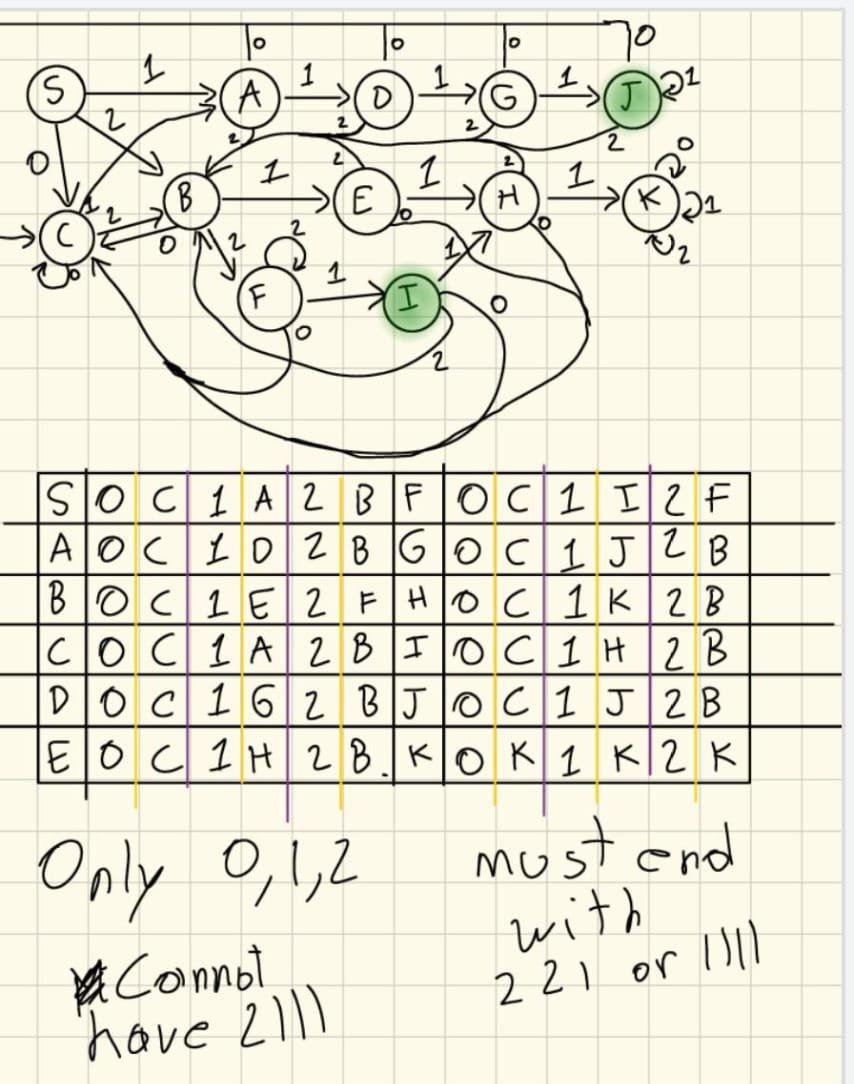 0 0 0 0
1 1 1 1 1
S A D G J
2 2 2 2 2
0 2 2
1 1 1 0
B E H K 1
1 2 0 0 2
C 0 2 2 1
0 1
F I 0
0 2
S 0 C 1 A 2 B F 0 C 1 I 2 F
A 0 C 1 D 2 B G 0 C 1 J 2 B
B 0 C 1 E 2 F H 0 C 1 K 2 B
C 0 C 1 A 2 B I 0 C 1 H 2 B
D 0 C 1 G 2 B J 0 C 1 J 2 B
E 0 C 1 H 2 B. K 0 K 1 K 2 K
Only 0,1,2
Cannot
have 2111
must end
with
221 or 1111